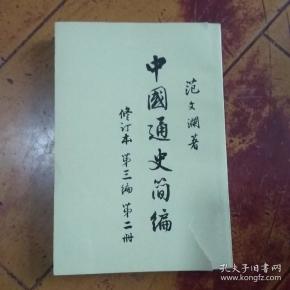 范文瀾著
中國通史简编
修订本 第三编 第二册
孔夫子旧书网